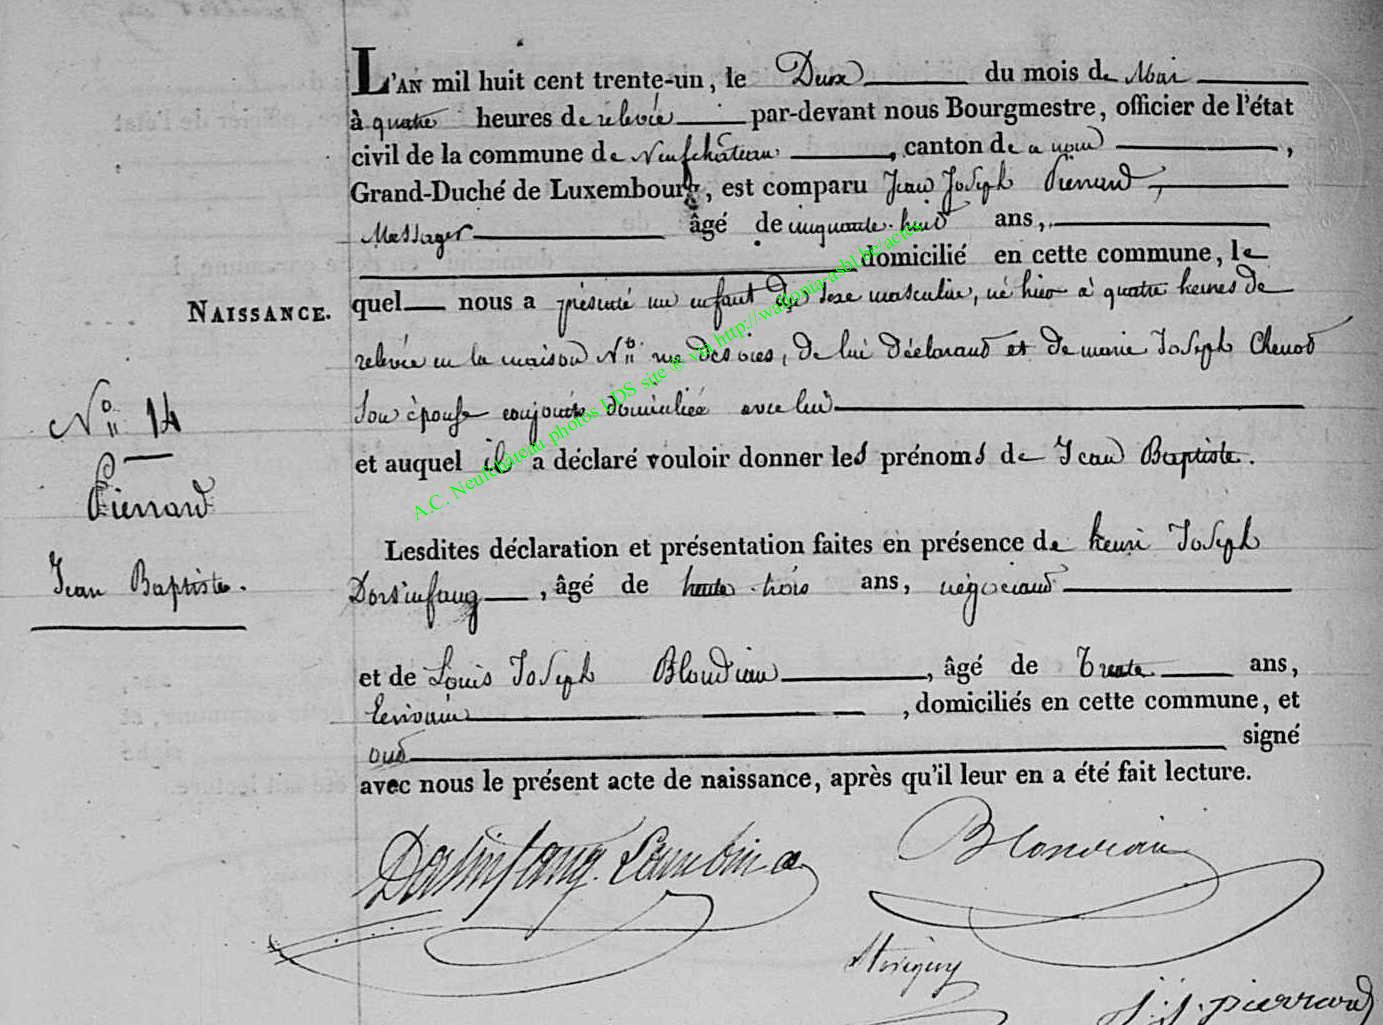 L'AN mil huit cent trente-un, le Deux du mois de Mai
à quatre heures de relevée par-devant nous Bourgmestre, officier de l'état
civil de la commune de Neufchâteau, canton de ce nom,
Grand-Duché de Luxembourg, est comparu Jean Joseph Pierrard,
Messager âgé de cinquante-huit ans,
domicilié en cette commune, le
NAISSANCE.
quel nous a présenté un enfant de sexe masculin, né hier à quatre heures de
relevée en la maison N° rue des oies, de lui déclarant et de marie Joseph Chenot
Son épouse conjointe domiciliée avec lui
et auquel il a déclaré vouloir donner les prénoms de Jean Baptiste.
N° 14
Pierrard
Jean Baptiste.
Lesdites déclaration et présentation faites en présence de henri Joseph
Dorsinfang, âgé de trente-trois ans, négociant
et de Louis Joseph Blondiau, âgé de Trente ans,
Ecrivain, domiciliés en cette commune, et
ont signé
avec nous le présent acte de naissance, après qu'il leur en a été fait lecture.
Dorsinfang
Blondiau
J. J. pierrard
A.C. Neufchâteau photos LDS site @ via http://wallonia-asbl.be/actes